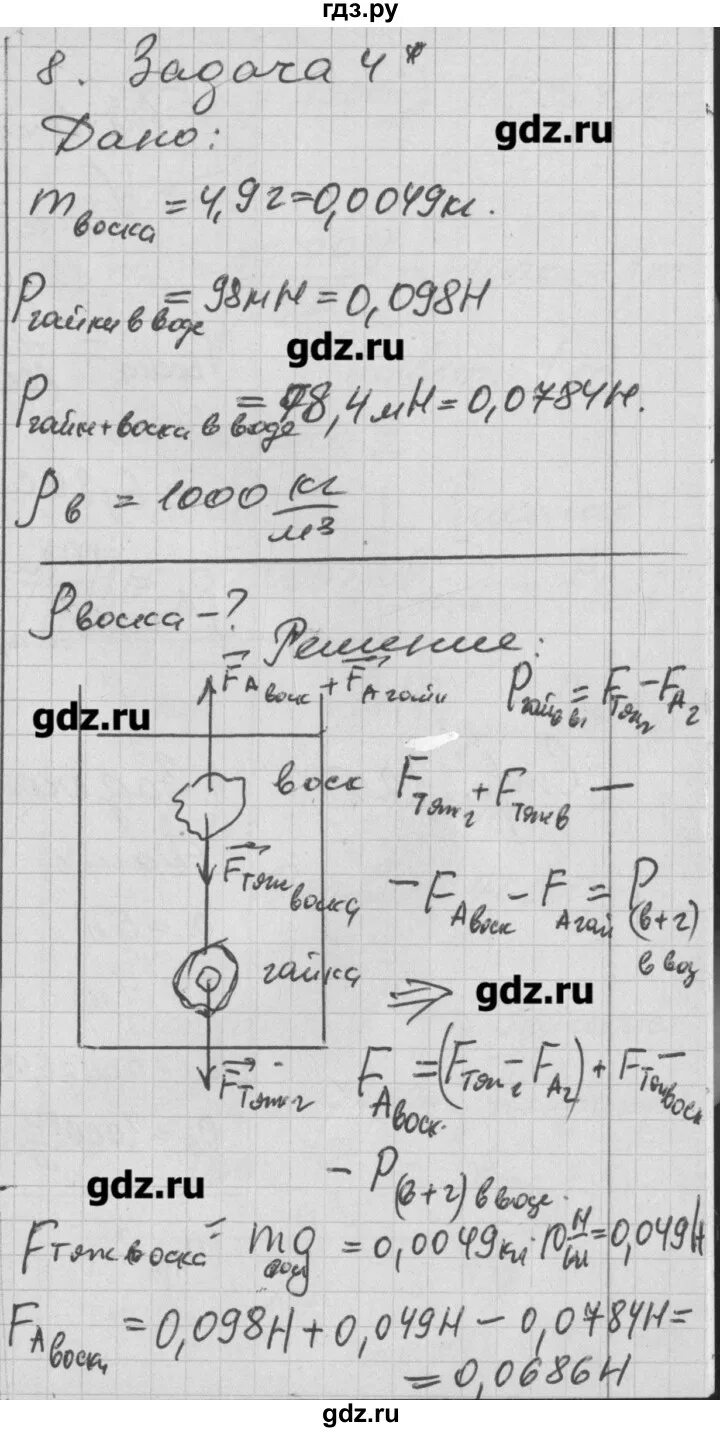 гдз.ру
8. Задача 4*
Дано:
gdz.ru
m воска = 4,9г = 0,0049кг.
P гайки в воде = 98мН = 0,098Н
gdz.ru
P гайки+воска в воде = 78,4мН = 0,0784Н.
ρв = 1000 кг/м3
ρ воска - ?
Решение:
F A воск + F A гайки
P гай в в. = F тяж г - F A г
gdz.ru
воск
F тяж г + F тяж в —
F тяж воска
- F A воск - F A гай = P (в+г) в вод
гайка
⇒
gdz.ru
F тяж г
F A воск. = (F тяж г - F A г) + F тяж воск —
- P (в+г) в воде.
gdz.ru
F тяж воска = mg = 0,0049кг · 10 Н/кг = 0,049Н
F A воски = 0,098Н + 0,049Н - 0,0784Н =
= 0,0686Н
gdz.ru